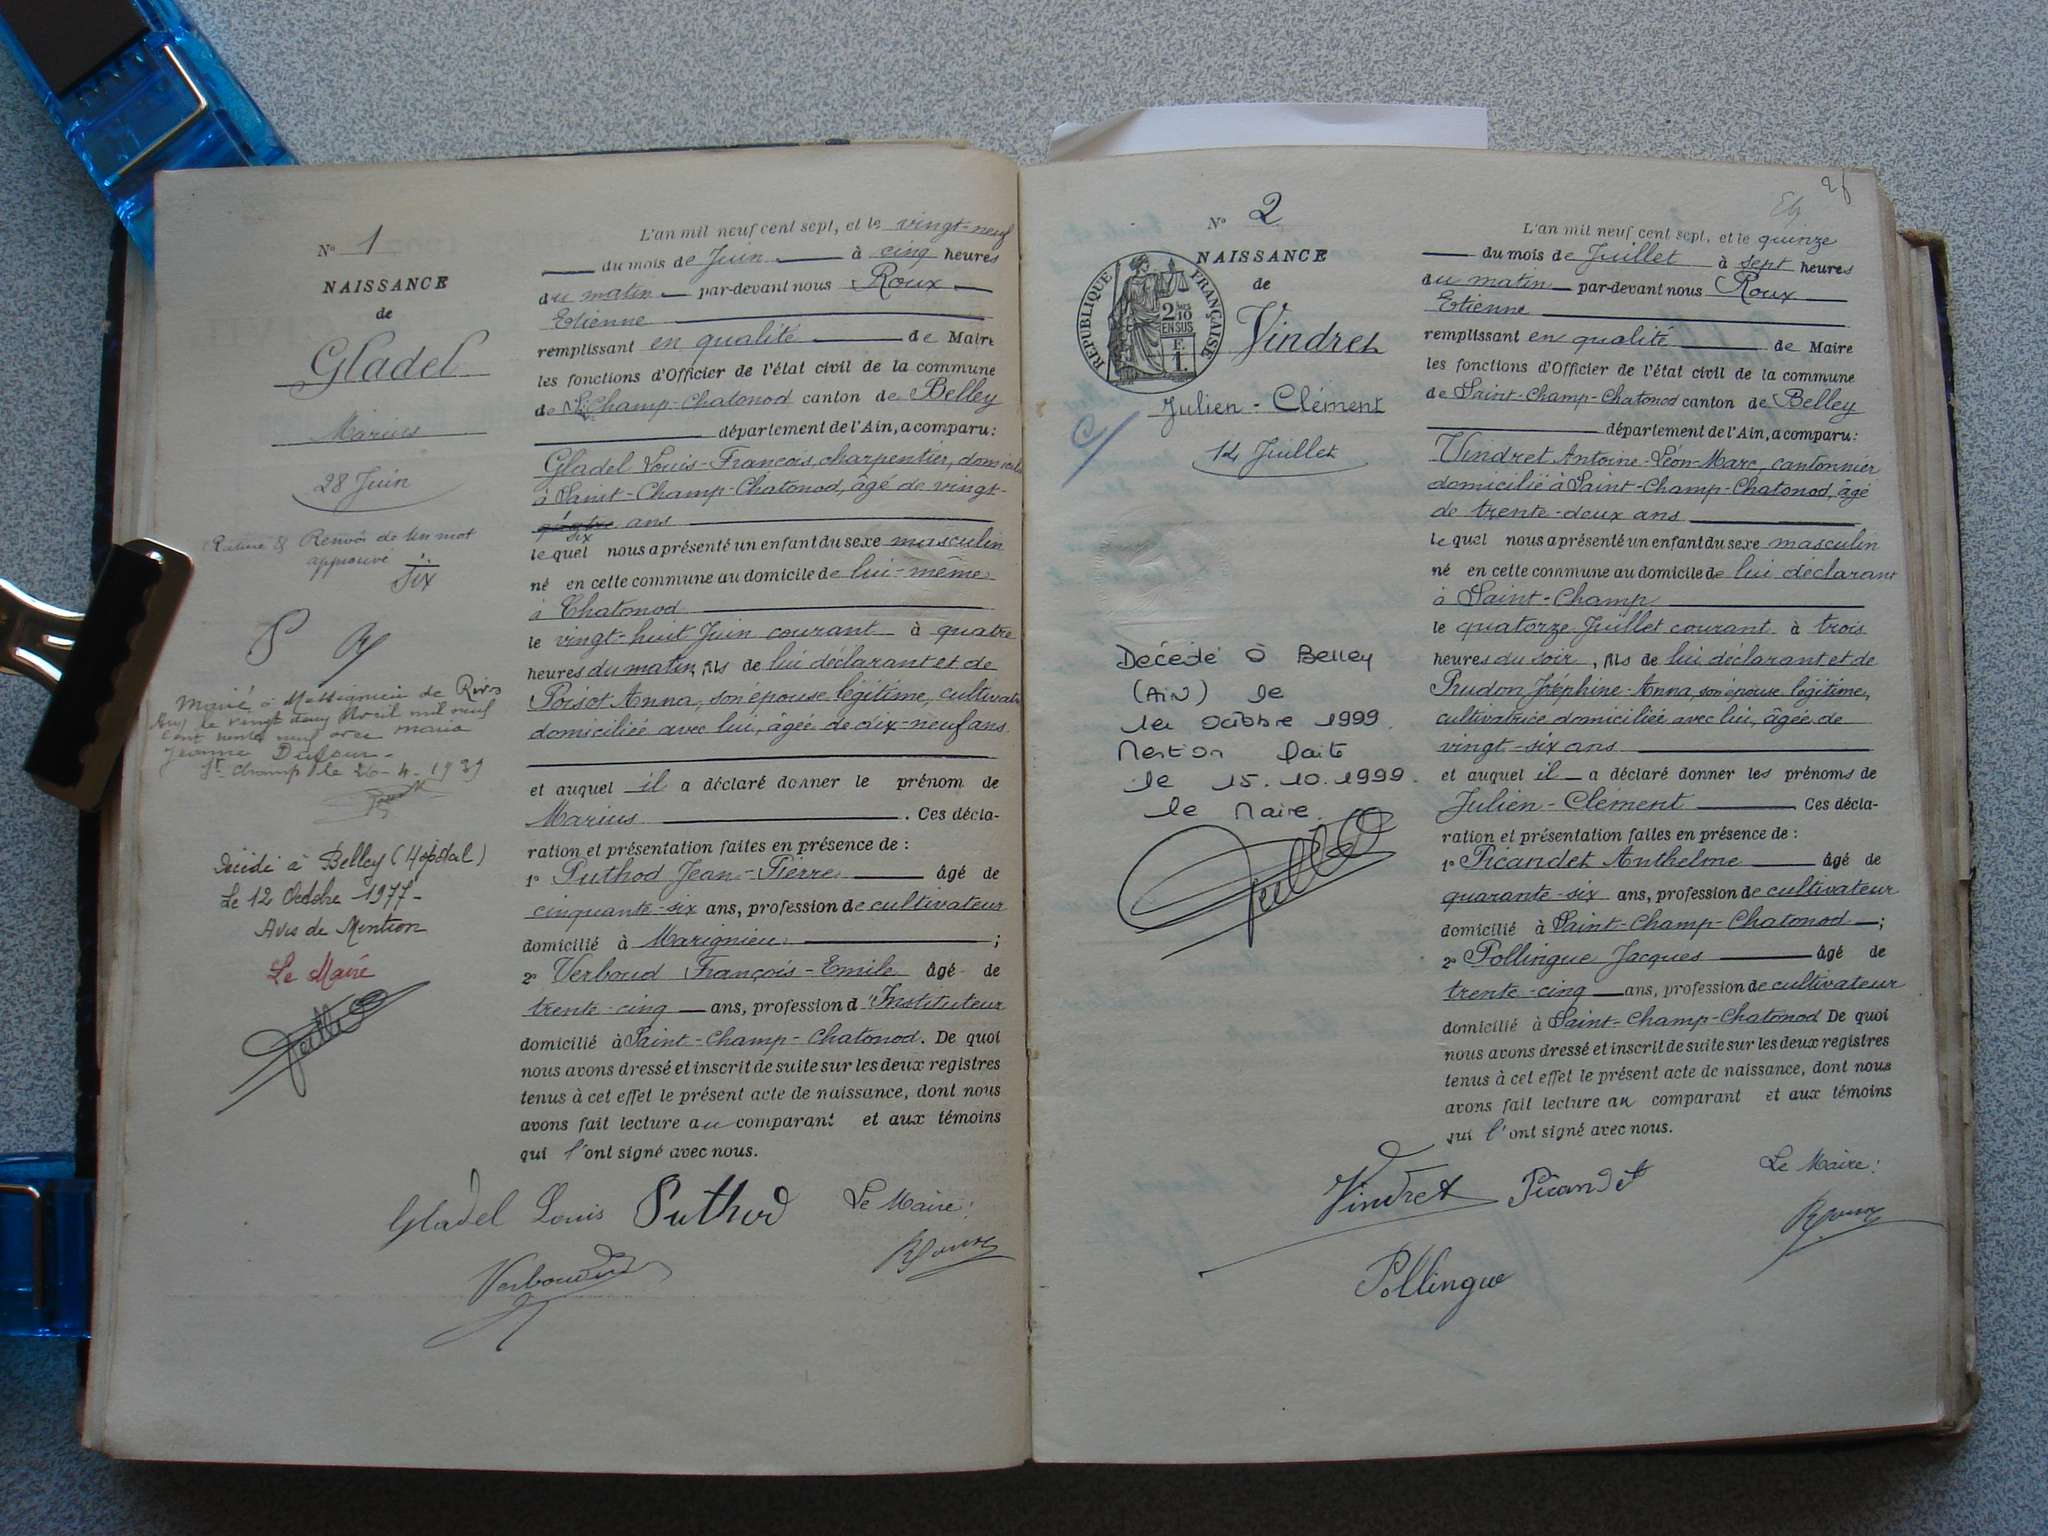 N° 1
NAISSANCE
de
Gladel
Marius
28 Juin
Rature & Renvoi de un mot
approuvé
Six
Marié à Massignieu de Rives
Ain, le vingt deux Avril mil neuf
cent trente neuf avec Maria
Jeanne Dufour.
St Champ le 26-4-1939
Décédé à Belley (Hôpital)
Le 12 Octobre 1977-
Avis de Mention
Le Maire
L'an mil neuf cent sept, et le vingt-neuf
du mois de Juin à cinq heures
du matin par-devant nous Roux
Etienne
remplissant en qualité de Maire
les fonctions d'Officier de l'état civil de la commune
de St Champ-Chatonod canton de Belley
département de l'Ain, a comparu :
Gladel Louis-François, charpentier, domicilié
à Saint-Champ-Chatonod, âgé de vingt-
quatre ans
six
le quel nous a présenté un enfant du sexe masculin
né en cette commune au domicile de lui-même
à Chatonod
le vingt-huit Juin courant à quatre
heures du matin, fils de lui déclarant et de
Poisot Anna, son épouse légitime, cultivatrice
domiciliée avec lui, âgée de dix-neuf ans
et auquel il a déclaré donner le prénom de
Marius . Ces décla-
ration et présentation faites en présence de :
1° Puthod Jean-Pierre âgé de
cinquante-six ans, profession de cultivateur
domicilié à Marignieu ;
2° Verboud François-Emile âgé de
trente-cinq ans, profession d'Instituteur
domicilié à Saint-Champ-Chatonod. De quoi
nous avons dressé et inscrit de suite sur les deux registres
tenus à cet effet le présent acte de naissance, dont nous
avons fait lecture au comparant et aux témoins
qui l'ont signé avec nous.
Gladel Louis Puthod Le Maire :
Verboud Roux
N° 2
NAISSANCE
de
RÉPUBLIQUE FRANÇAISE
2/10
EN SUS
F.
1.
Vindret
Julien-Clément
14 Juillet
Décédé à Belley
(Ain) le
1er Octobre 1999.
Mention faite
le 15.10.1999.
le Maire.
L'an mil neuf cent sept, et le quinze
du mois de Juillet à sept heures
du matin par-devant nous Roux
Etienne
remplissant en qualité de Maire
les fonctions d'Officier de l'état civil de la commune
de Saint-Champ-Chatonod canton de Belley
département de l'Ain, a comparu :
Vindret Antoine-Léon-Marc, cantonnier
domicilié à Saint-Champ-Chatonod, âgé
de trente-deux ans
le quel nous a présenté un enfant du sexe masculin
né en cette commune au domicile de lui déclarant
à Saint-Champ
le quatorze Juillet courant à trois
heures du soir, fils de lui déclarant et de
Prudon Joséphine-Anna, son épouse légitime,
cultivatrice domiciliée avec lui, âgée de
vingt-six ans
et auquel il a déclaré donner les prénoms de
Julien-Clément Ces décla-
ration et présentation faites en présence de :
1° Picandet Anthelme âgé de
quarante-six ans, profession de cultivateur
domicilié à Saint-Champ-Chatonod ;
2° Pollingue Jacques âgé de
trente-cinq ans, profession de cultivateur
domicilié à Saint-Champ-Chatonod De quoi
nous avons dressé et inscrit de suite sur les deux registres
tenus à cet effet le présent acte de naissance, dont nous
avons fait lecture au comparant et aux témoins
qui l'ont signé avec nous.
Vindret Picandet Le Maire :
Roux
Pollingue